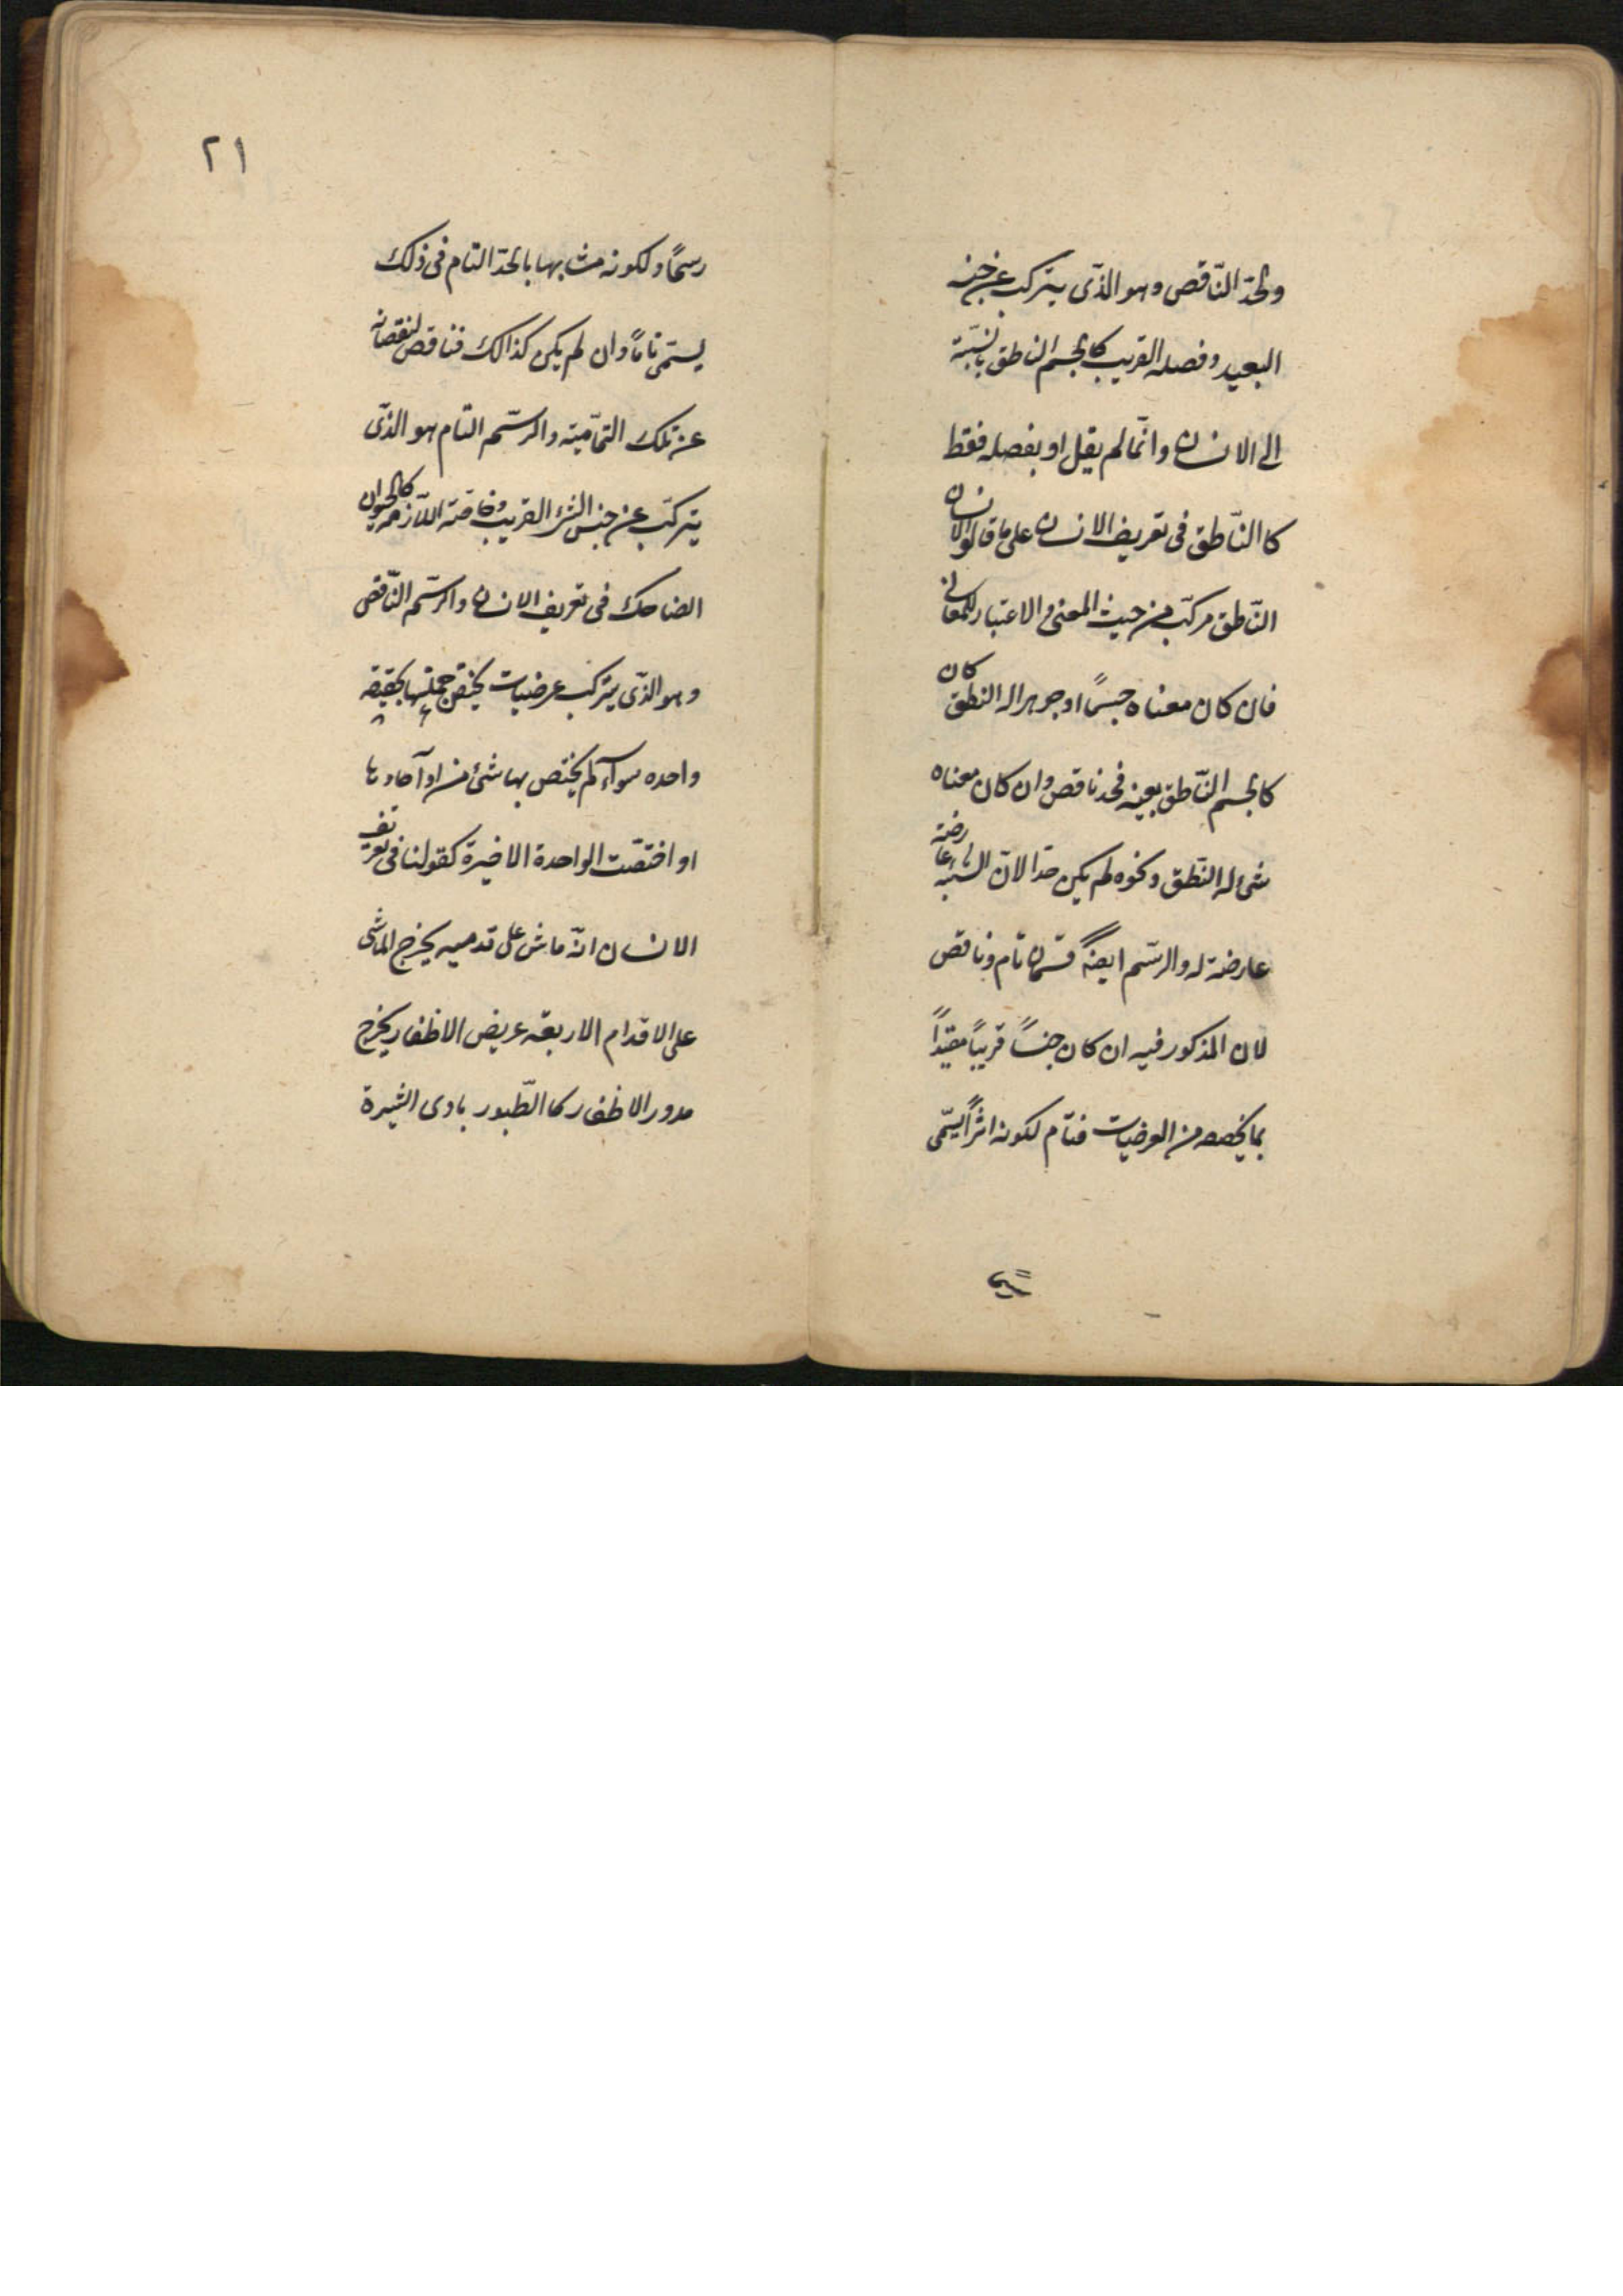 والحدّ النّاقص وهو الذّى يتركب عن جنسه
البعيد وفصله القريب كالجسم الناطق بالنسّبة
الى الانسان وانّما لم يقل او بفصله فقط
كاالنّاطق فى تعريف الانسان على ما قالوا لان
النّاطق مركّب من حيث المعنى والاعتبار للمعانى
فان كان معناه جسمًا او جوهرا له النطق كان
كالجسم النّاطق بعينه فحد ناقص وان كان معناه
شئ له النّطق ونحوه لم يكن حدّا لانّ الشّيئية عارضة
عارضة له والرسّم ايضًا قسمان تام وناقص
لان المذكور فيه ان كان جنسًا قريبًا مقيّدًا
بما يخصصه من العرضيات فتام لكونه اثرًا يسّمى
رسمًا ولكونه مشابها بالحدّ التام فى ذلك
يسّمى تامًا وان لم يكن كذالك فناقص لنقصانه
عن تلك التّماميّة والرسّم التّام هو الذّى
يتركّب عن جنس الشئ القريب وخاصّته اللّازمه كالحيوان
الضاحك فى تعريف الانسان والرسّم النّاقص
وهو الذّى يتركب عرضيات يختص جملتها بحقيقه
واحده سواء لم يختص بها شئ من آحادها
او اختصّت الواحدة الاخيرة كقولنا فى تعريف
الانسان انّه ماش على قدميه يخرج الماشى
على الاقدام الاربعّه عريض الاظفار يخرج
مدور الاظفار كاالطّيور بادى البشرة
٢١